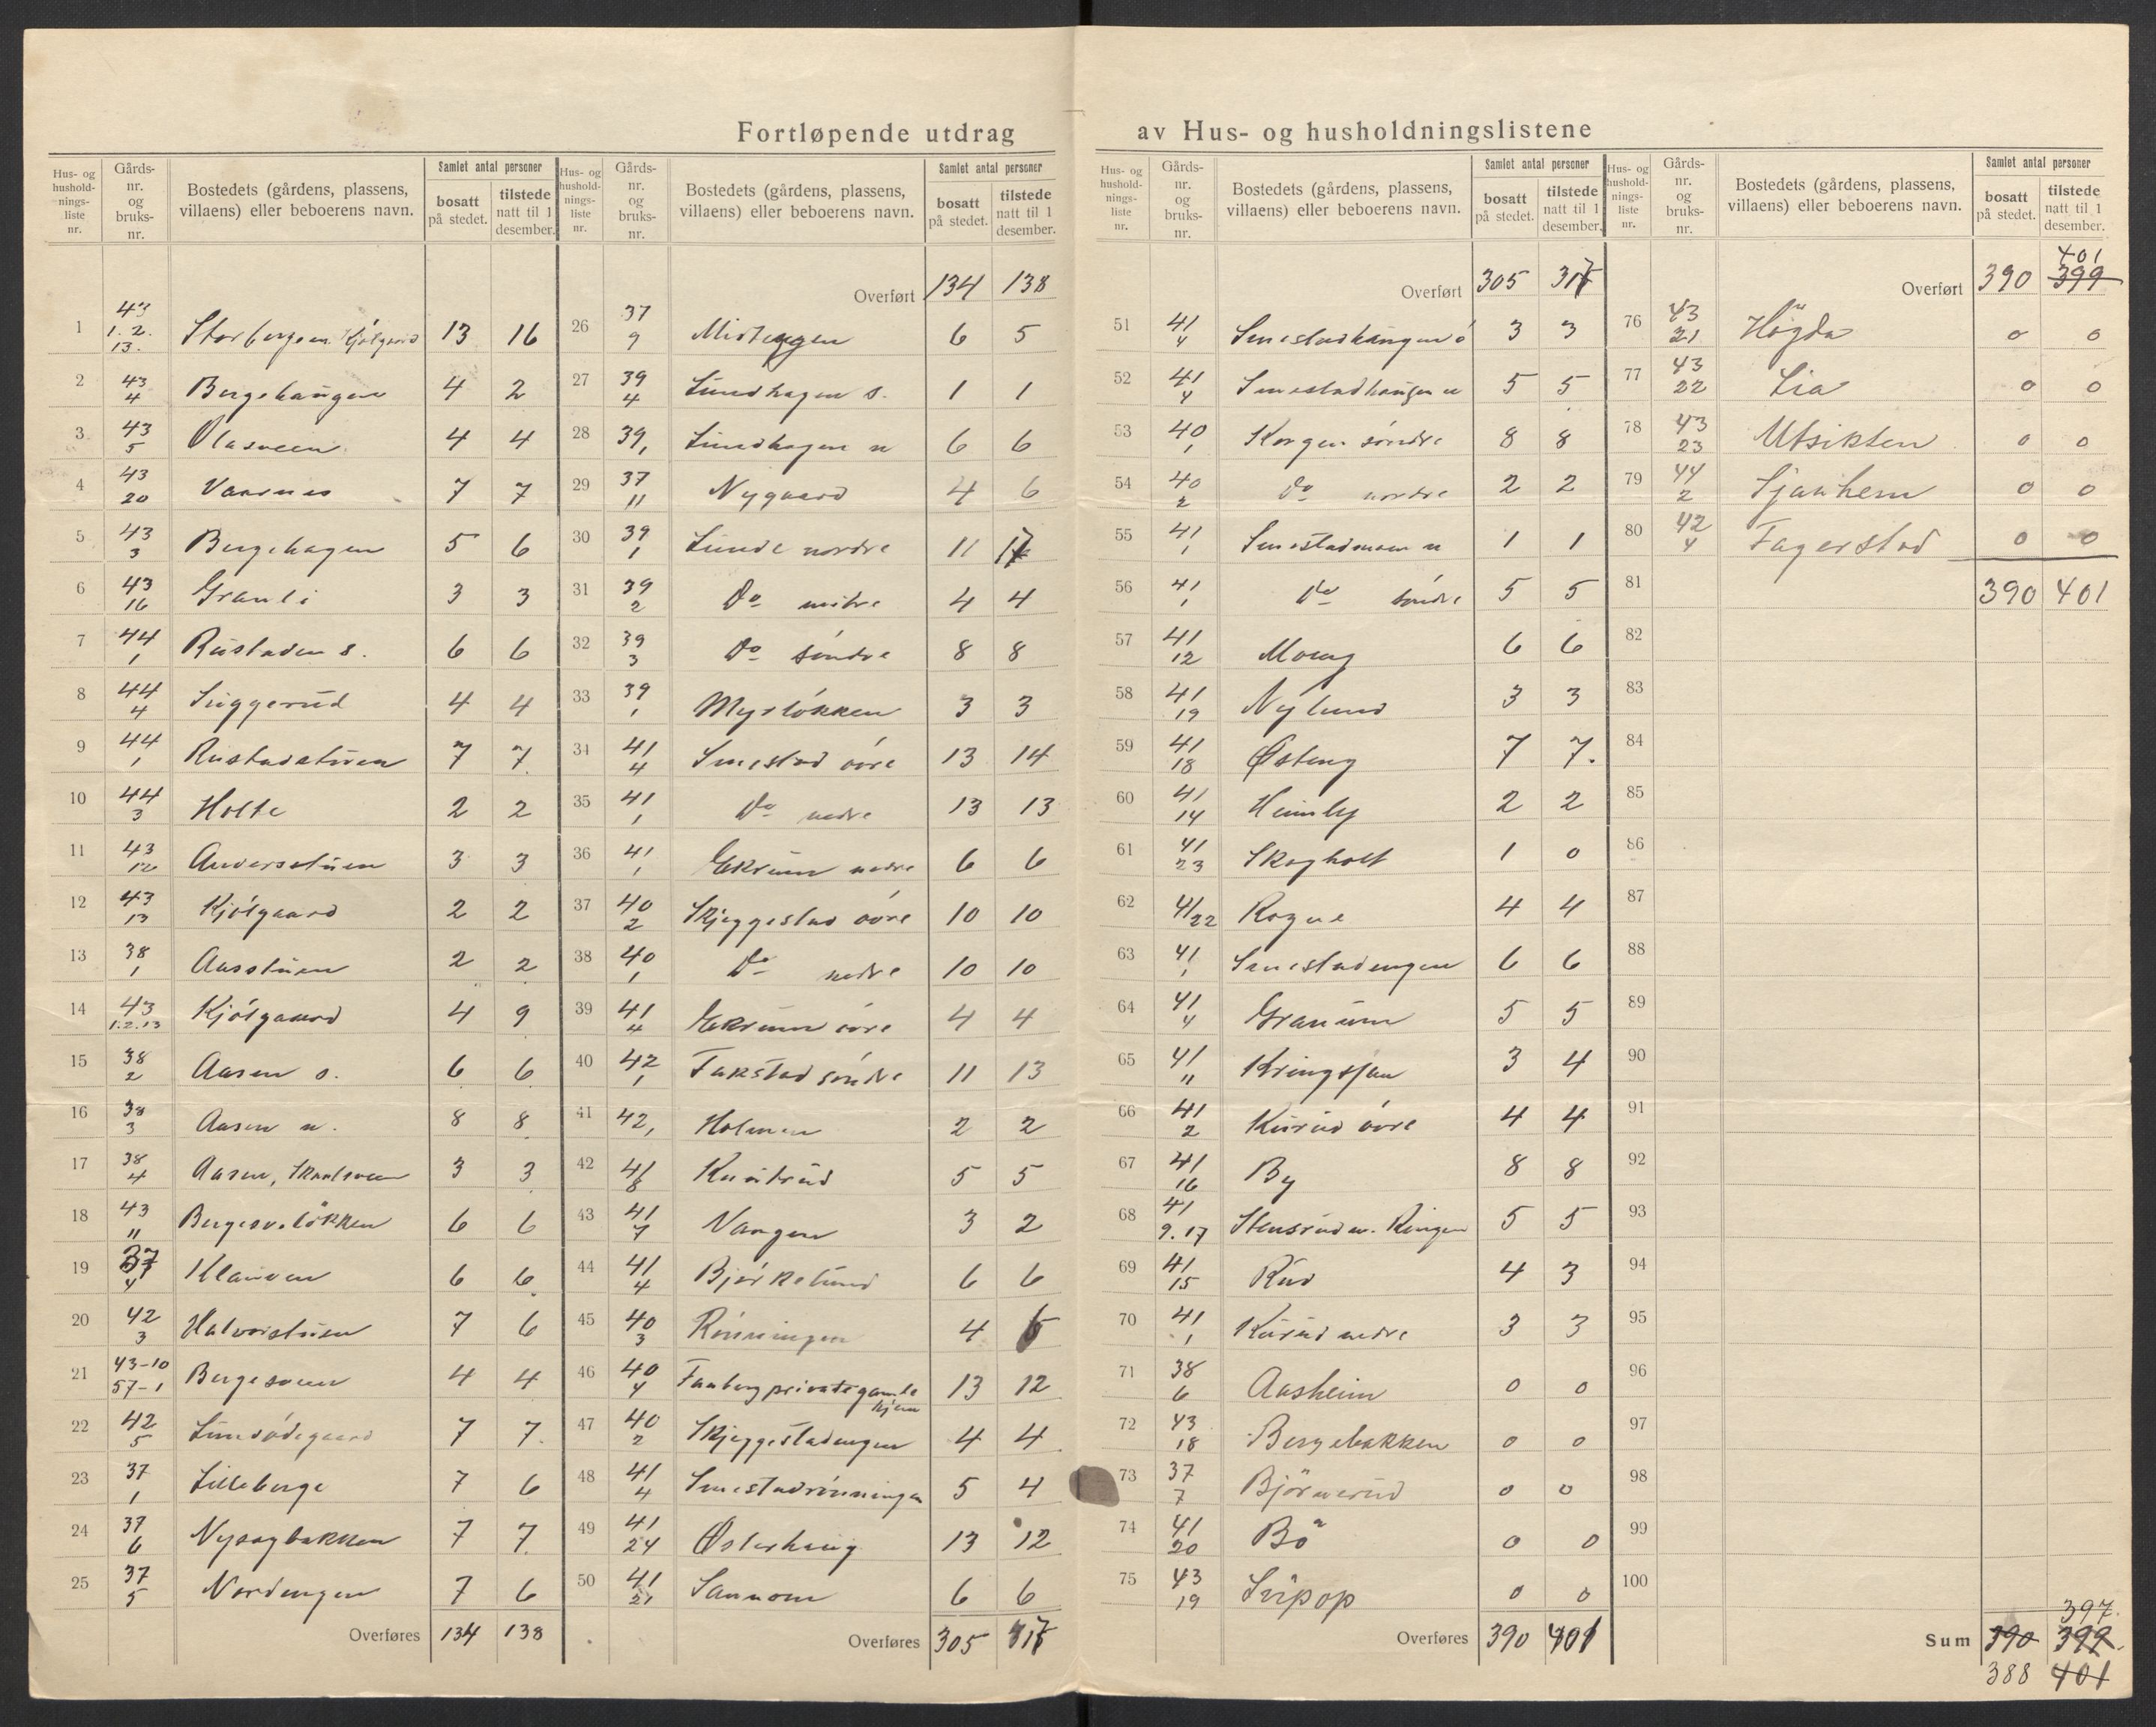 Fortløpende utdrag av Hus- og husholdningslistene
Hus- og husholdnings-liste nr. | Gårds-nr. og bruks-nr. | Bostedets (gårdens, plassens, villaens) eller beboerens navn. | Samlet antal personer bosatt på stedet. | tilstede natt til 1 desember.
1 43 1.2.13. Storberge m. Kjølgaard 13 16
2 43 4 Bergehaugen 4 2
3 43 5 Olasveen 4 4
4 43 20 Vaarnes 7 7
5 43 3 Bergehagen 5 6
6 43 16 Granli 3 3
7 44 1 Rustaden s. 6 6
8 44 4 Suggerud 4 4
9 44 1 Rustadstuen 7 7
10 44 3 Holte 2 2
11 43 12 Anderstuen 3 3
12 43 13 Kjølgaard 2 2
13 38 1 Aasstuen 2 2
14 43 1.2.13 Kjølgaard 4 9
15 38 2 Aasen s. 6 6
16 38 3 Aasen n. 8 8
17 38 4 Aasen, 3 3
18 43 11 6 6
19 37 4 Klausen 6 6
20 42 3 Halvorstuen 7 6
21 43-10 57-1 Bergesveen 4 4
22 42 5 Lundødegaard 7 7
23 37 1 Lilleberge 7 6
24 37 6 Nysagbakken 7 7
25 37 5 Nordengen 7 6
Overføres 134 138
Hus- og husholdnings-liste nr. | Gårds-nr. og bruks-nr. | Bostedets (gårdens, plassens, villaens) eller beboerens navn. | Samlet antal personer bosatt på stedet. | tilstede natt til 1 desember.
Overført 134 138
26 37 9 Midteggen 6 5
27 39 4 Lundhagen s. 1 1
28 39, 1 Lundhagen n 6 6
29 37 11 Nygaard 4 6
30 39 1 Lunde nordre 11
31 39 2 Do mitre 4 4
32 39 3 Do søndre 8 8
33 39 1 Myrløkken 3 3
34 41 4 Smestad øvre 13 14
35 41 1 Do nedre 13 13
36 41 1 Ekrum nedre 6 6
37 40 2 Skjeggestad øvre 10 10
38 40 1 Do nedre 10 10
39 41 4 Ekrum øvre 4 4
40 42 1 Fakstad søndre 11 13
41 42, 1 Holmen 2 2
42 41 8 Knutrud 5 5
43 41 7 Vangen 3 2
44 41 4 Bjørkelund 6 6
45 40 3 Rønningen 4
46 40 4 Faaberg private gamlehjem 13 12
47 40 2 Skjeggestadengen 4 4
48 41 4 Smestadrønningen 5 4
49 41 24 Østerhaug 13 12
50 41 21 Sannom 6 6
Overføres 305 317
Hus- og husholdnings-liste nr. | Gårds-nr. og bruks-nr. | Bostedets (gårdens, plassens, villaens) eller beboerens navn. | Samlet antal personer bosatt på stedet. | tilstede natt til 1 desember.
Overført 305 317
51 41 4 Smestadhaugen ø 3 3
52 41 4 Smestadhaugen n 5 5
53 40 1 Korgen søndre 8 8
54 40 2 Do nordre 2 2
55 41 1 Smestadmoen n 1 1
56 41 1 Do søndre 5 5
57 41 12 Moeng 6 6
58 41 19 Nylund 3 3
59 41 18 Østeng 7 7.
60 41 14 Heimly 2 2
61 41 23 Skogholt 1 0
62 41/22 Rogne 4 4
63 41 1 Smestadengen 6 6
64 41 4 Granum 5 5
65 41 11 Kringsjaa 3 4
66 41 2 Kurud øvre 4 4
67 41 16 By 8 8
68 41 9.17 Stensrud m. Ringen 5 5
69 41 15 Rud 4 3
70 41 1 Kurud nedre 3 3
71 38 6 Aasheim 0 0
72 43 18 Bergebakken 0 0
73 37 7 Björnerud 0 0
74 41 20 Bö 0 0
75 43 19 0 0
Overføres 390 401
Hus- og husholdnings-liste nr. | Gårds-nr. og bruks-nr. | Bostedets (gårdens, plassens, villaens) eller beboerens navn. | Samlet antal personer bosatt på stedet. | tilstede natt til 1 desember.
401
Overført 390 399
76 43 21 Högda 0 0
77 43 22 Lia 0 0
78 43 23 Utsikten 0 0
79 44 2 Sjaahem 0 0
80 42 4 Fagerstad 0 0
81 390 401
82
83
84
85
86
87
88
89
90
91
92
93
94
95
96
97
98
99
100
397.
Sum 390 399.
388 401